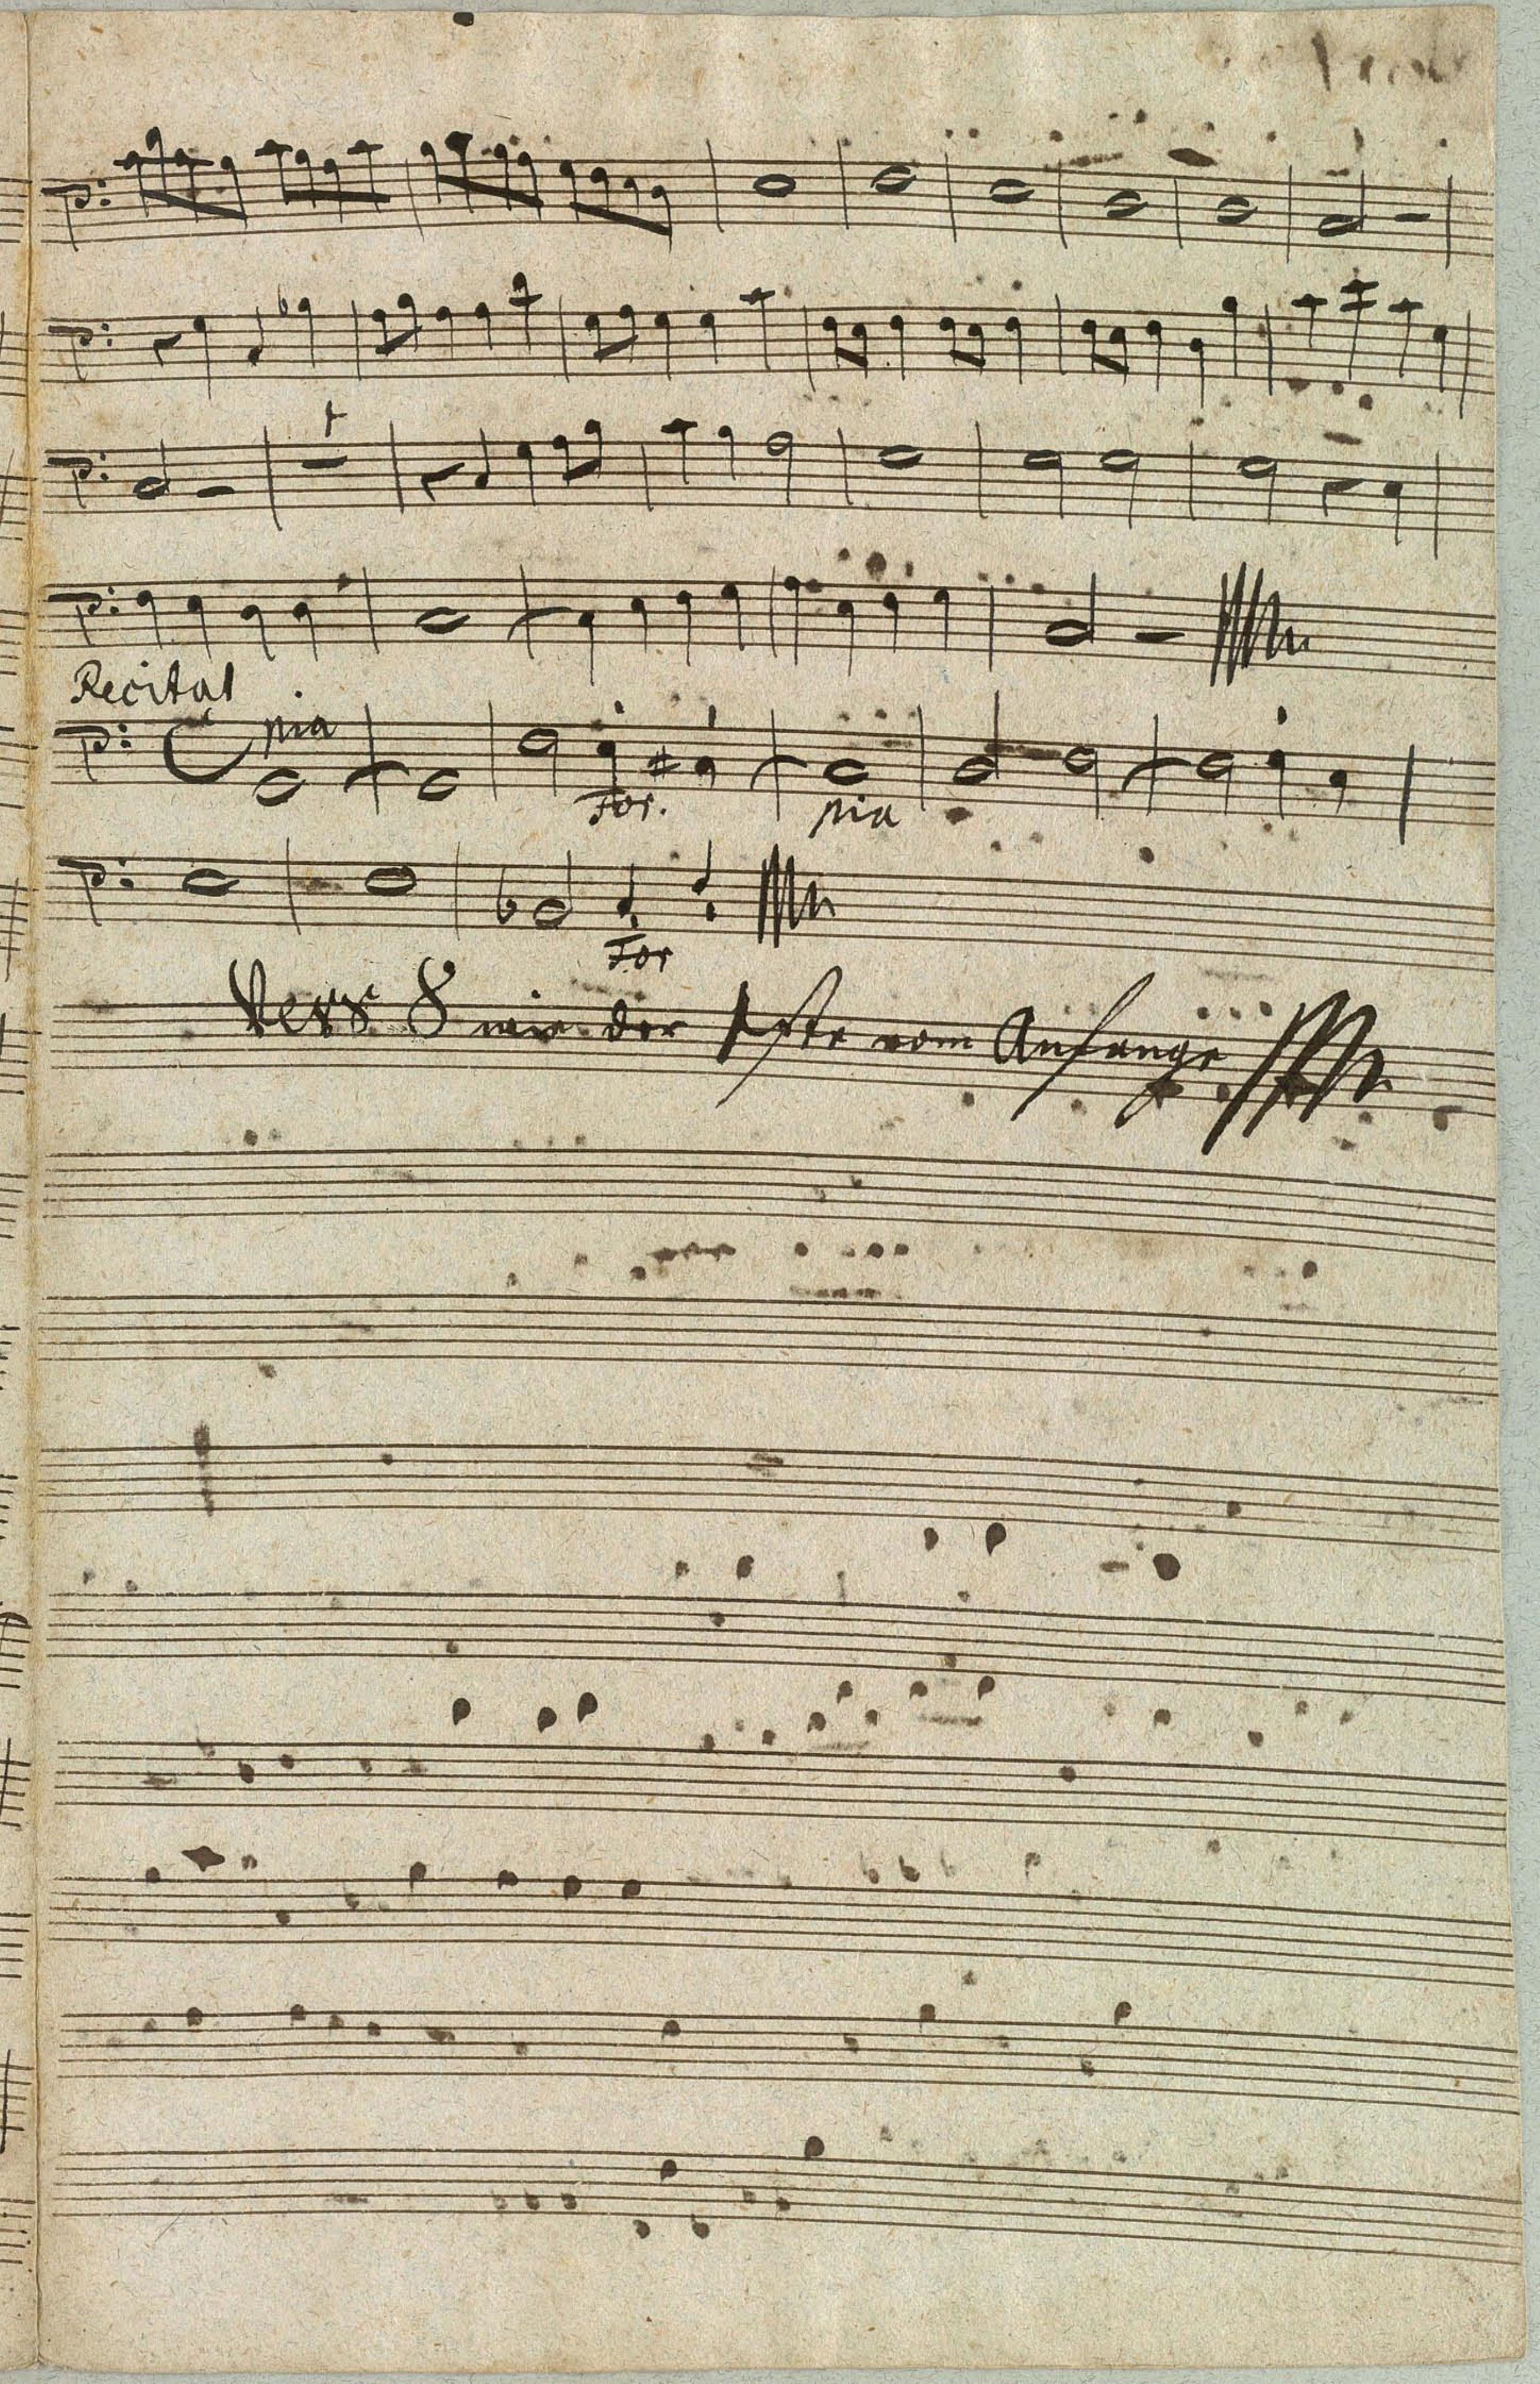 Recitat
pia
For. pia
For
Vers 8 wie der 1ste vom Anfange